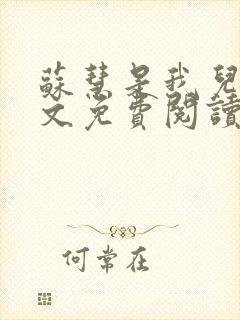 蘇慧是我兒
文免費閱讀
何常在